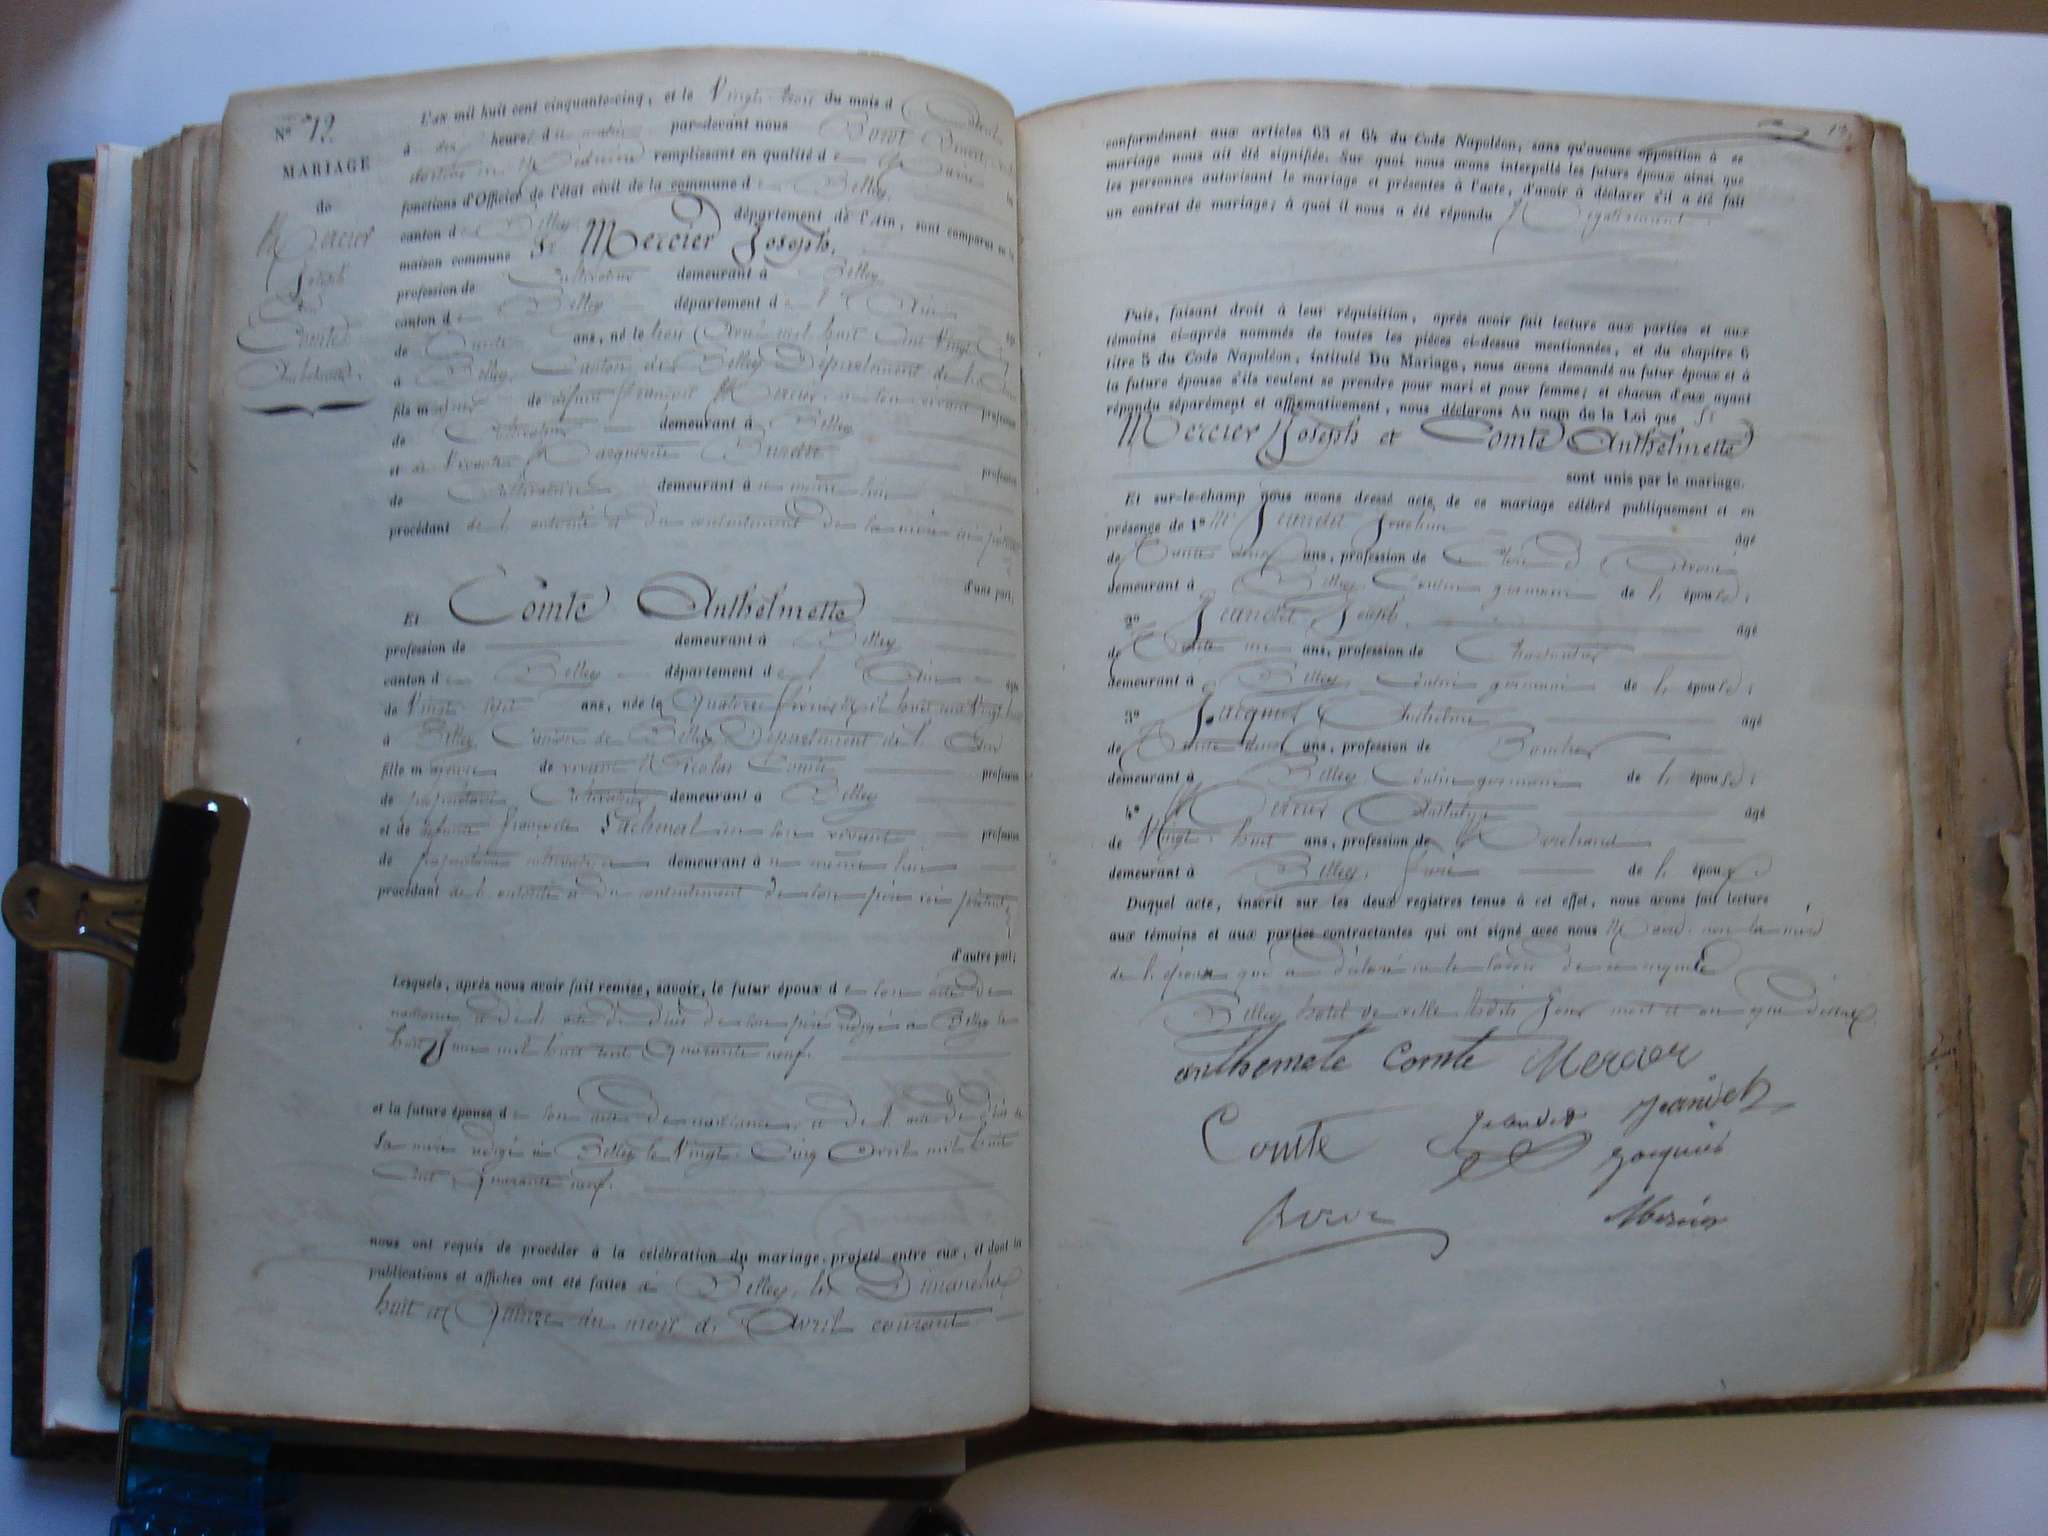 N° 12.
MARIAGE
de
Mercier
Joseph
Comte
Anthelmette.
L'an mil huit cent cinquante-cinq, et le Vingt-trois du mois d'Avril
à dix heures du matin par-devant nous
docteur en Médecine remplissant en qualité de Maire les
fonctions d'Officier de l'état civil de la commune de Belley,
canton de Belley, département de l'Ain, sont comparus en la
maison commune Sr Mercier Joseph,
profession de Cultivateur demeurant à Belley
canton de Belley département de l'Ain âgé
de Trente ans, né le trois Avril mil huit cent Vingt Cinq
à Belley, Canton de Belley Département de l'Ain
fils majeur de défunt François Mercier, en son vivant profession
de Cultivateur demeurant à Belley
et de vivante Marguerite profession
de Cultivatrice demeurant à au même lieu
procédant de l'autorité et du consentement de sa mère ici présente
d'une part,
Et Comte Anthelmette
profession de demeurant à Belley
canton de Belley département de l'Ain âgée
de Vingt sept ans, née le Quatorze février Mil huit cent Vingt huit
à Belley Canton de Belley Département de l'Ain
fille majeure de vivant Nicolas Comte profession
de propriétaire Cultivateur demeurant à Belley
et de défunte Françoise en son vivant profession
de propriétaire cultivatrice demeurant à au même lieu
procédant de l'autorité et du consentement de son père ici présent
d'autre part;
Lesquels, après nous avoir fait remise, savoir, le futur époux de son acte de
naissance et de l'acte de décès de son père rédigé à Belley le
huit Juin mil huit cent Quarante neuf.
et la future épouse de son acte de naissance, et de l'acte de décès de
sa mère rédigé à Belley le Vingt-Cinq Avril mil huit
Cent Quarante neuf.
nous ont requis de procéder à la célébration du mariage projeté entre eux, et dont la
publications et affiches ont été faites à Belley, les Dimanches
huit et Quinze du mois d'Avril courant
conformément aux articles 63 et 64 du Code Napoléon, sans qu'aucune opposition à ce
mariage nous ait été signifiée. Sur quoi nous avons interpellé les futurs époux ainsi que
les personnes autorisant le mariage et présentes à l'acte, d'avoir à déclarer s'il a été fait
un contrat de mariage; à quoi il nous a été répondu Négativement
Puis, faisant droit à leur réquisition, après avoir fait lecture aux parties et aux
témoins ci-après nommés de toutes les pièces ci-dessus mentionnées, et du chapitre 6
titre 5 du Code Napoléon, intitulé Du Mariage, nous avons demandé au futur époux et à
la future épouse s'ils veulent se prendre pour mari et pour femme; et chacun d'eux ayant
répondu séparément et affirmativement, nous déclarons Au nom de la Loi que Sr
Mercier Joseph et Comte Anthelmette
sont unis par le mariage.
Et sur-le-champ nous avons dressé acte, de ce mariage célébré publiquement et en
présence de 1° Mr Jeandet Joachim âgé
de Trente deux ans, profession de Clerc d'Avoué
demeurant à Belley Cousin germain de l'épouse;
2° Jeandet Joseph, âgé
de Trente un ans, profession de Charpentier
demeurant à Belley, Cousin germain de l'épouse;
3° Anthelme âgé
de Trente deux ans, profession de
demeurant à Belley Cousin germain de l'épouse;
4° Mercier âgé
de Vingt-huit ans, profession de Marchand
demeurant à Belley, frère de l'époux
Duquel acte, inscrit sur les deux registres tenus à cet effet, nous avons fait lecture
aux témoins et aux parties contractantes qui ont signé avec nous Maire, non la mère
de l'époux qui a déclaré ne le savoir de ce enquise
Belley hôtel de ville lesdits jour mois et an que dessus
anthemete Comte Mercier
Comte Jeandet Jeandet
Jacquier
Mercier